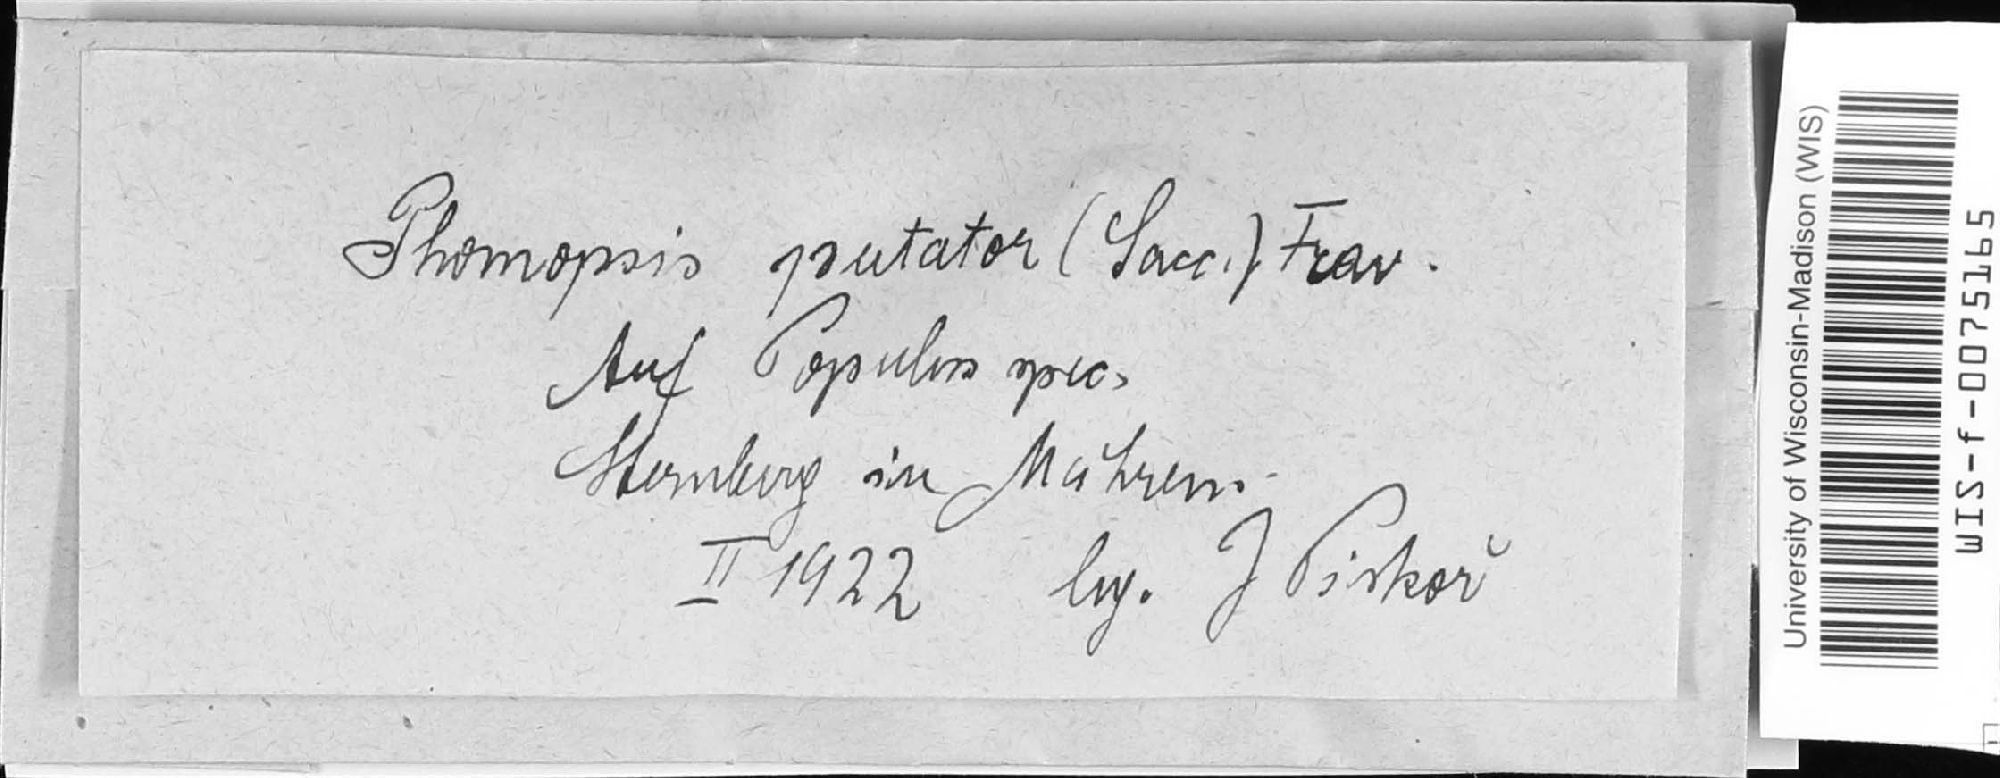 Phomopsis putator (Sacc.) Trav.
Auf Populus spec.
Sternberg in Mähren.
II 1922 leg. J Piskoř
University of Wisconsin-Madison (WIS)
WIS-f-0075165